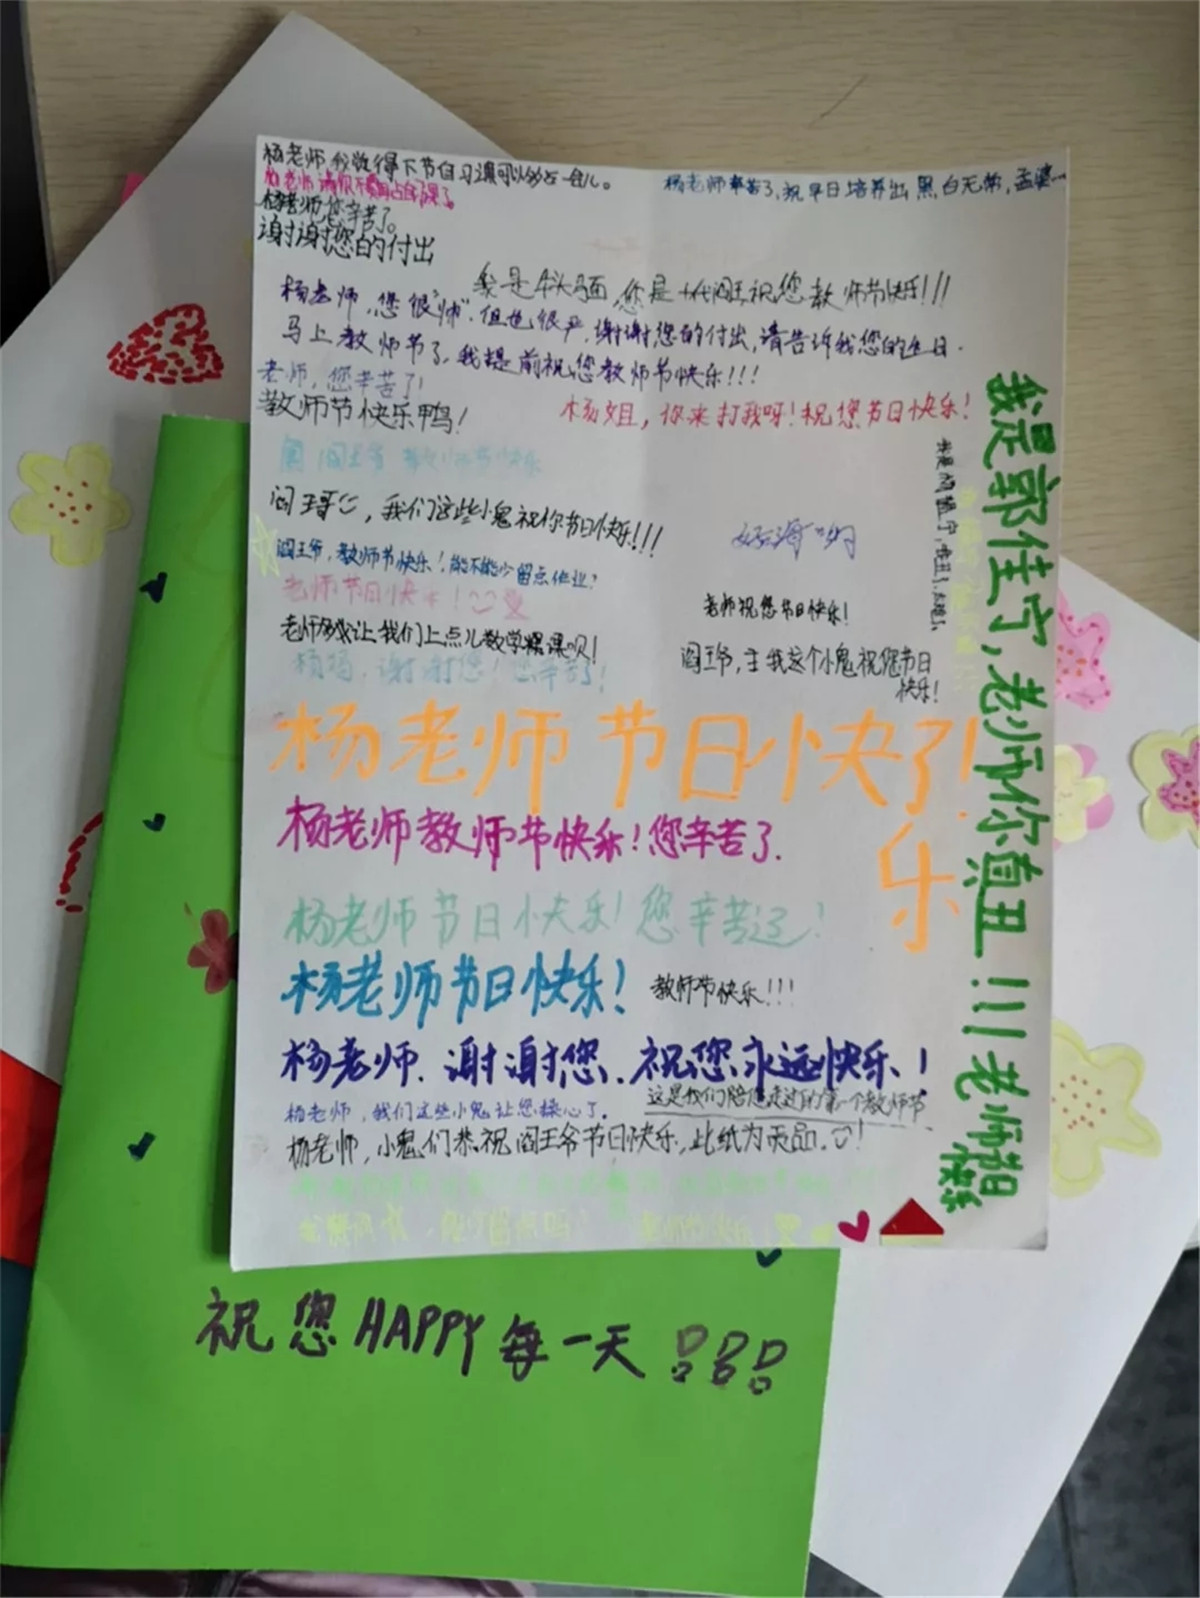 杨老师，我觉得下节自习课可以多占一会儿。
杨老师请你不要再占自习课了。
杨老师辛苦了，祝早日培养出黑白无常，孟婆…
杨老师您辛苦了。
谢谢您的付出
我是牛头马面，您是十代阎王，祝您教师节快乐!!!
杨老师，您很"帅"，但也很严，谢谢您的付出，请告诉我您的生日.
马上教师节了，我提前祝您教师节快乐!!!
老师，您辛苦了!
教师节快乐鸭!
杨姐，你来打我呀!祝您节日快乐!
阎王爷 教师节快乐
阎王哥，我们这些小鬼祝你节日快乐!!!
阎王爷，教师节快乐!能不能少留点作业?
老师节日快乐!
老师祝您节日快乐!
老师多我让我们上点儿数学课呗!
杨妈，谢谢您!您辛苦了!
阎王爷，我这个小鬼祝您节日
快乐!
杨老师节日快了!
乐
杨老师教师节快乐!您辛苦了.
杨老师节日快乐!您辛苦辽!
杨老师节日快乐!
教师节快乐!!!
杨老师.谢谢您.祝您永远快乐、!
这是我们陪您走过的第一个教师节
杨老师，我们这些小鬼让您操心了.
杨老师，小鬼们恭祝阎王爷节日快乐，此纸为贡品.
我是郭佳宁，老师你真丑!!!老师节日
快乐
祝您HAPPY每一天!!!